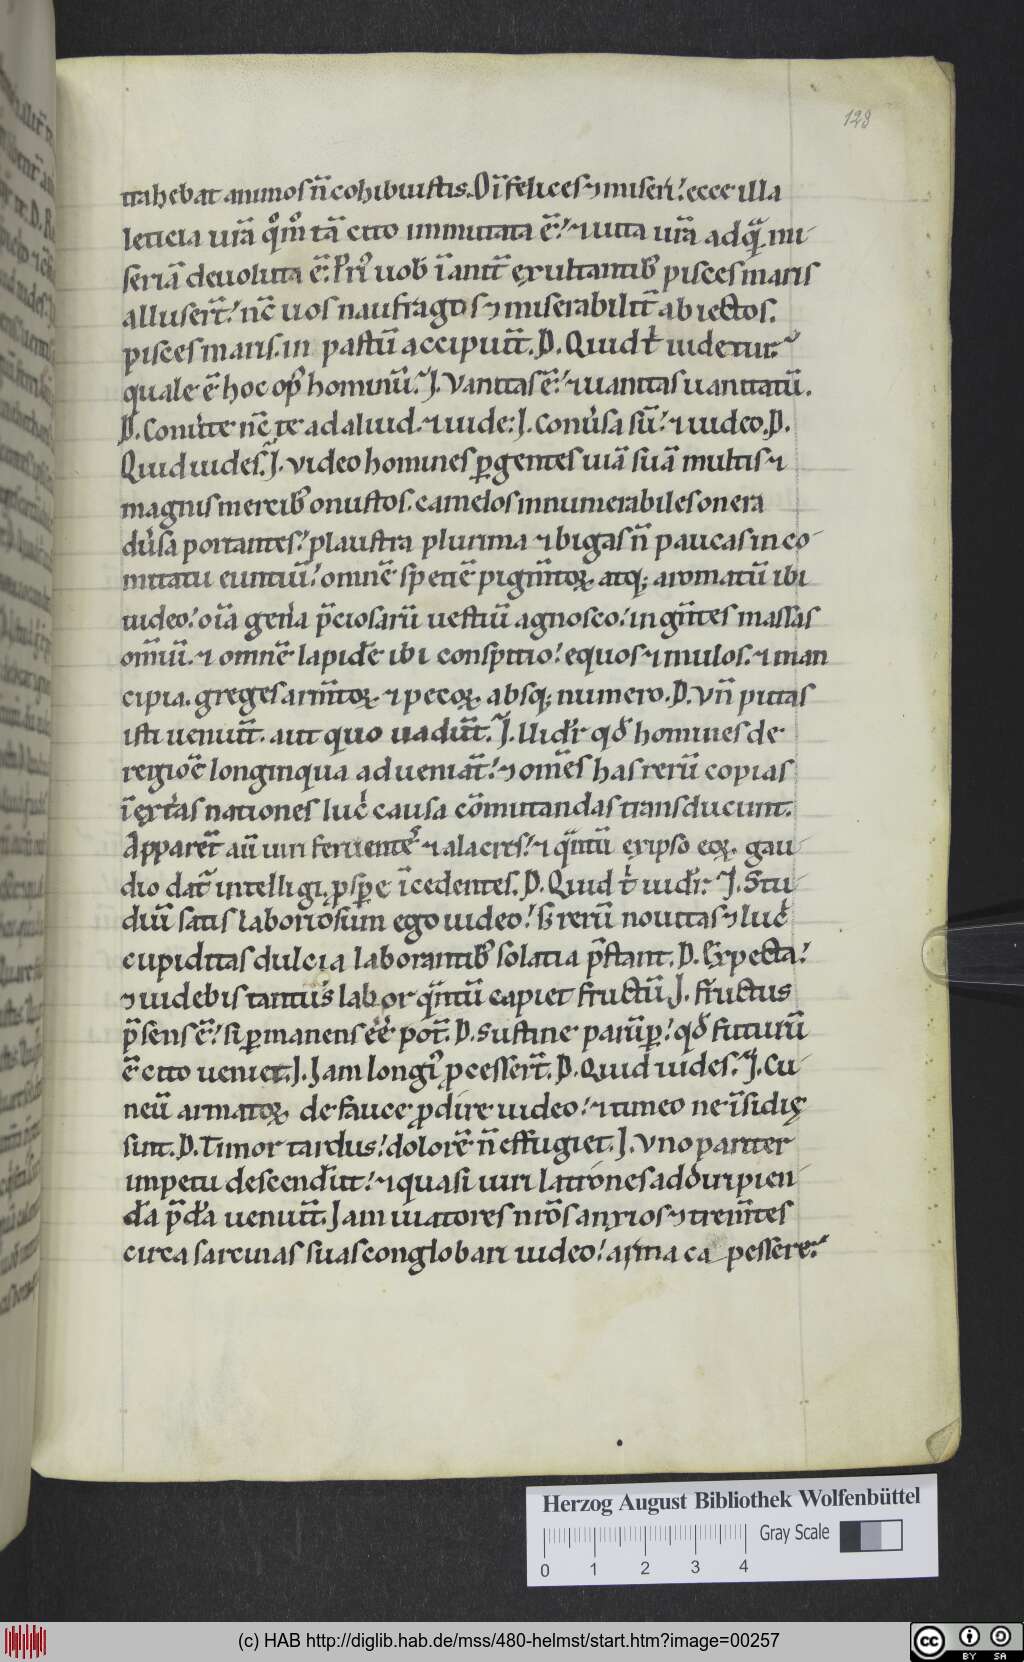 128
trahebat animos n̄ cohibuistis. O īfelices ⁊ miseri! ecce illa
leticia ur̄a qͦmͦ tā cito immutata ē! ⁊ uita ur̄a ad qͣ mi-
seriā deuoluta ē. Pri uob īantē exultantib pisces maris
alluser̄t! nc̄ uos naufragos ⁊ miserabilit̄ abiectos.
pisces maris. in pastū accipiūt. D. Quid t̄ uidetur
quale ē hoc op̄ hominū. I. Vanitas ē! ⁊ uanitas uanitatū.
D. Conūte nc̄ te ad aliud. ⁊ uide. I. Conūsa sū! ⁊ uideo. D.
Quid uides. I. video homines ꝑgentes uiā suā multis ⁊
magnis mercib onustos. camelos innumerabiles onera
dūsa portantes! plaustra plurima ⁊ bigas n̄ paucas in co-
mitatu euntiū! omnē spetiē pigm̄toꝝ atq; aromatū ibi
uideo! oīa gen̄a p̄ciosarū uestiū agnosco! ingn̄tes massas
om̄iū. ⁊ omnē lapidē ibi conspitio! equos ⁊ mulos. ⁊ man
cipia. greges arm̄toꝝ ⁊ pecoꝝ absq; numero. D. Vn̄ putas
isti ueniūt. aut quo uadūt. I. Uidr̄ qđ homines de
regioē longinqua adueniāt! ⁊ om̄es has rerū copias
īext̄as nationes luc̄ causa cōmutandas transducunt.
Apparēt aū uiri feruentē ⁊ alacres! ⁊ qͣntū ex ipso eoꝝ gau-
dio dat̄ intelligi, ꝓspe īcedentes. D. Quid t̄ uidr̄. I. Stu-
diū satis laboriosum ego uideo! s; rerū nouitas ⁊ luc̄
cupiditas dulcia laborantib solatia p̄stant. D. Expecta!
⁊ uidebis tantus labor qͣntū capiet fructū. I. fructus
p̄sens ē! si ꝑmanens eē pot̄. D. Sustine parūꝑ! qđ futurū
ē cito ueniet. I. Iam longi ꝓcesser̄t. D. Quid uides. I. Cu-
neū armatoꝝ de fauce ꝓdire uideo! ⁊ timeo ne īsidię
sint. D. Timor tardus! dolorē n̄ effugiet. I. Vno pariter
impetu descendūt! ⁊ quasi uiri latrones ad diripien-
da p̄da ueniūt. Iam uiatores nr̄os anxios ⁊ trem̄tes
circa sarcinas suas conglobari uideo! arma capessere.
Herzog August Bibliothek Wolfenbüttel
Gray Scale
0 1 2 3 4
(c) HAB http://diglib.hab.de/mss/480-helmst/start.htm?image=00257
cc BY SA